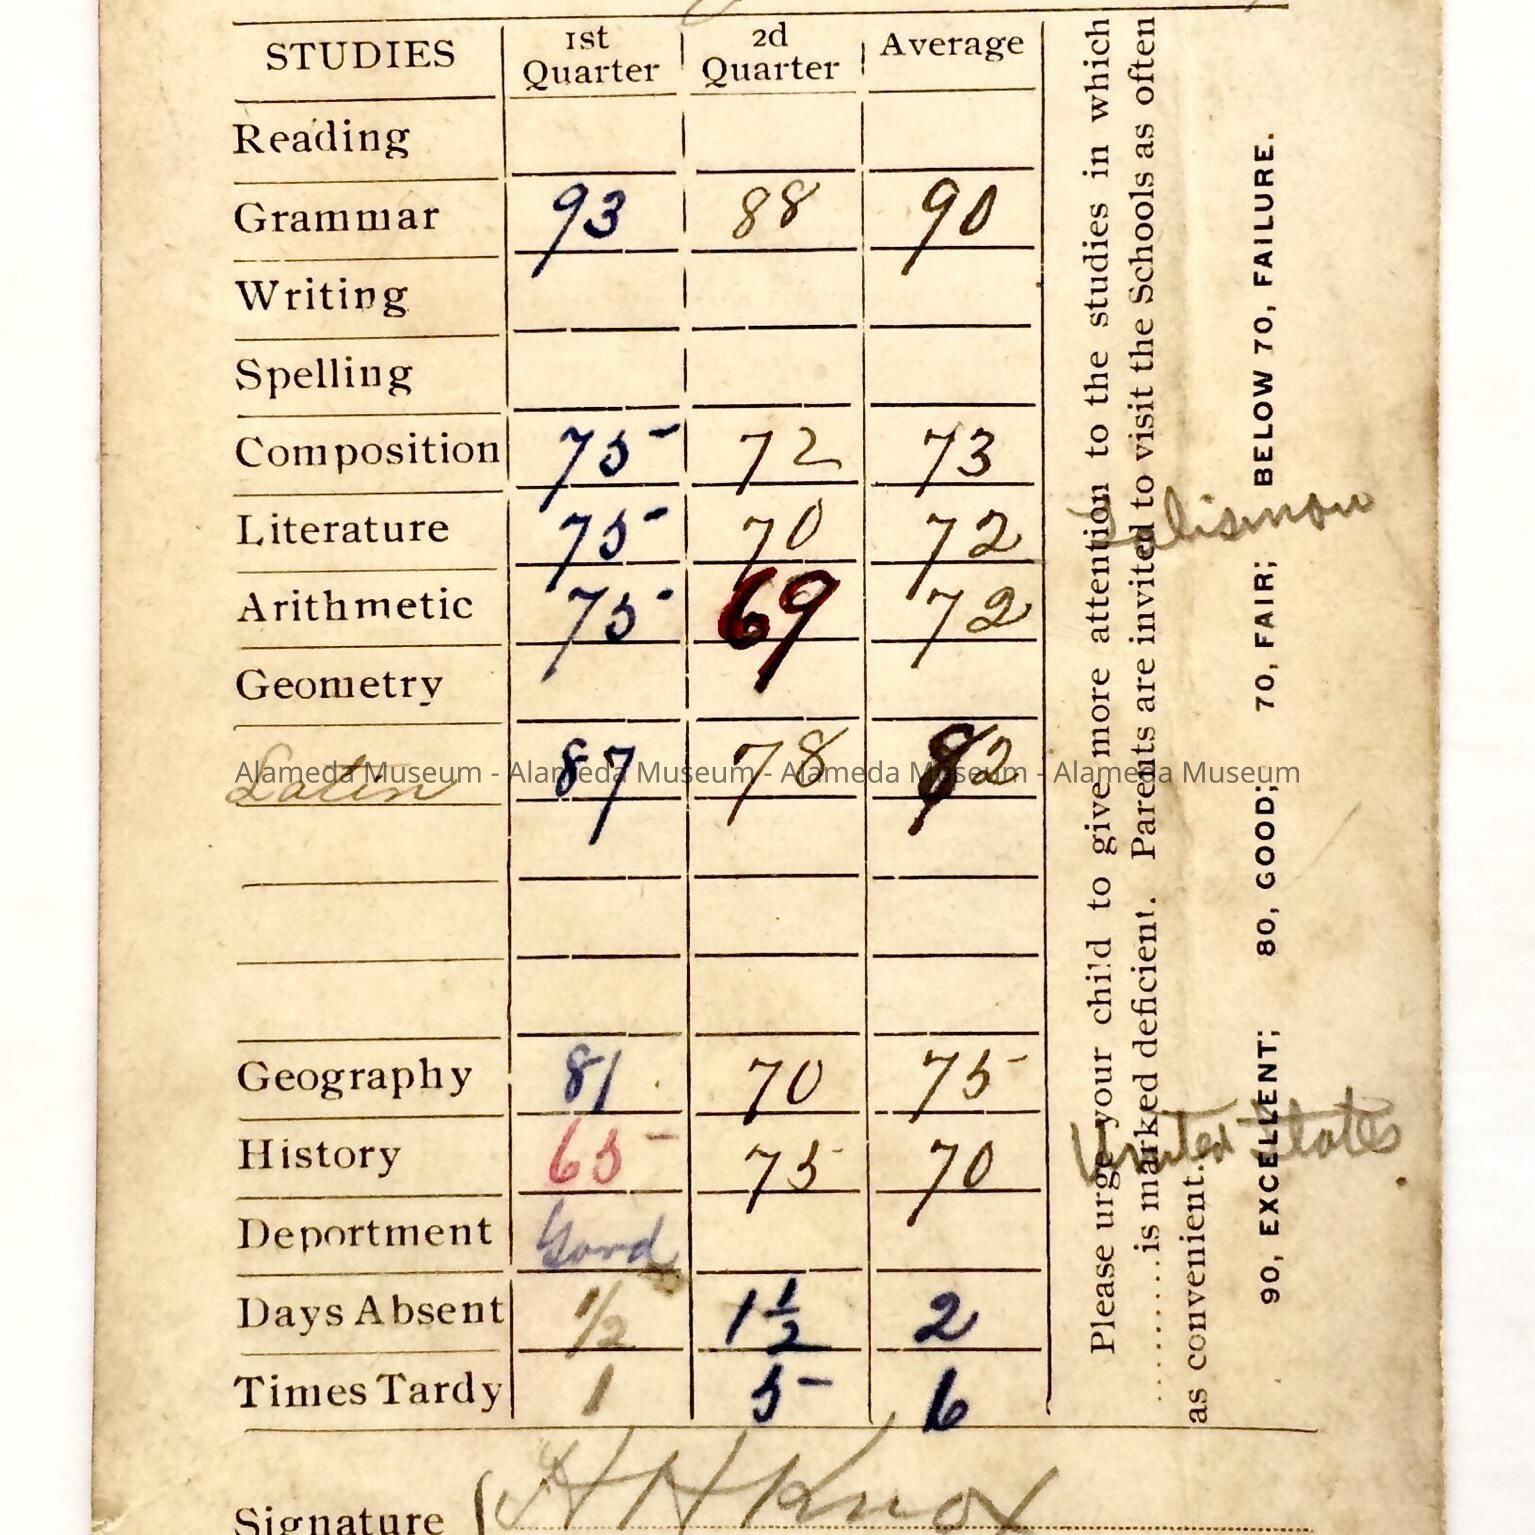 STUDIES 1st Quarter 2d Quarter Average
Reading
Grammar 93 88 90
Writing
Spelling
Composition 75 72 73
Literature 75 70 72 Talisman
Arithmetic 75 69 72
Geometry
Latin 87 78 82
Alameda Museum - Alameda Museum - Alameda Museum - Alameda Museum
Geography 81 70 75
History 65 75 70 United States
Deportment Good
Days Absent 1/2 1 1/2 2
Times Tardy 1 5 6
Signature H H Knox
Please urge your child to give more attention to the studies in which
.......... is marked deficient. Parents are invited to visit the Schools as often
as convenient.
90, EXCELLENT; 80, GOOD; 70, FAIR; BELOW 70, FAILURE.